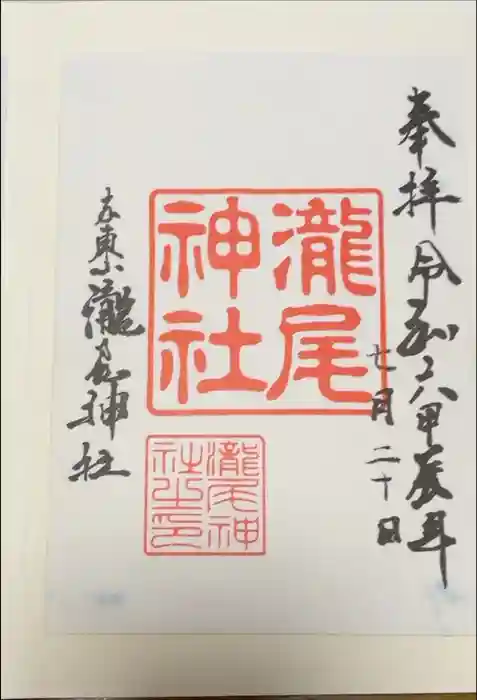 奉拝 令和六甲辰年
七月二十日
瀧尾
神社
瀧尾神
社之印
瀧尾神社